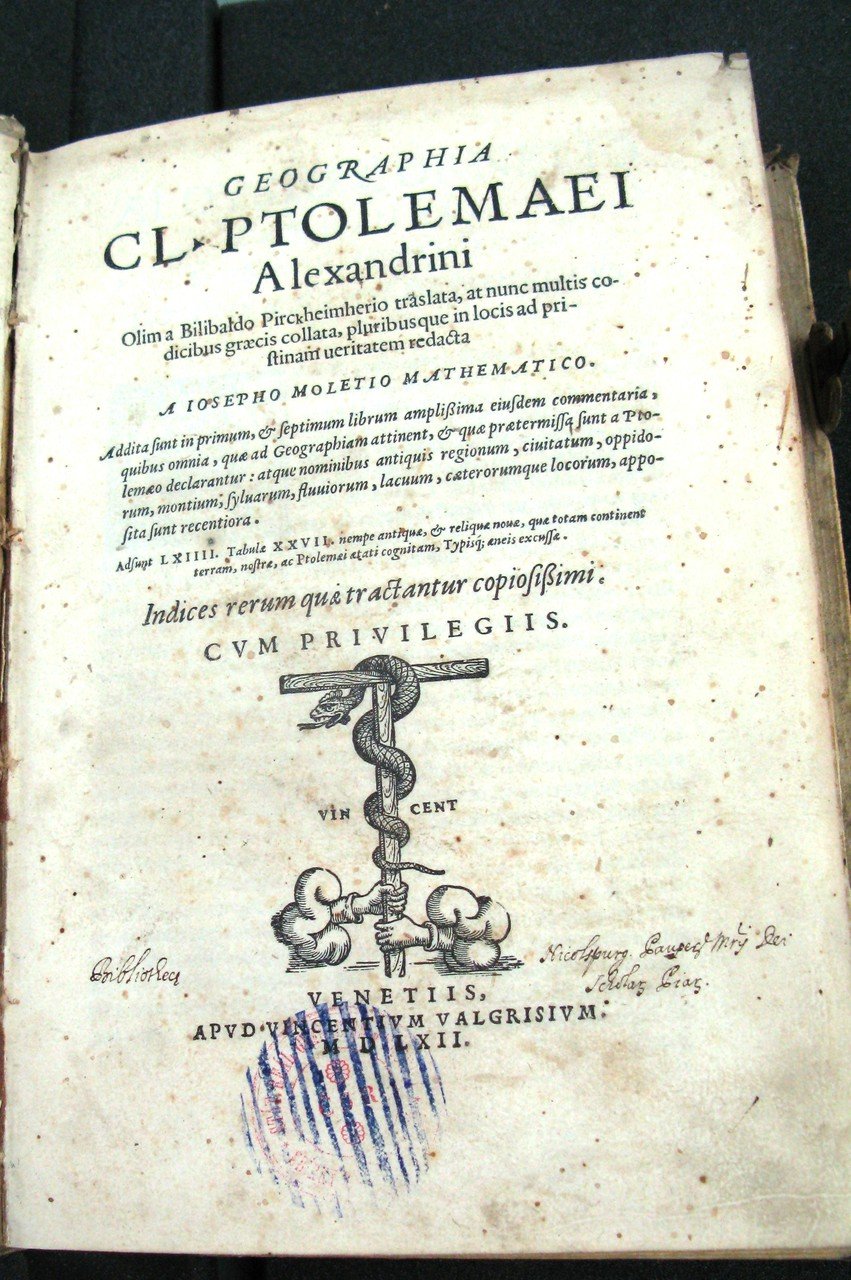 GEOGRAPHIA
CL. PTOLEMAEI
Alexandrini
Olim a Bilibaldo Pirckheimherio trāslata, at nunc multis co-
dicibus græcis collata, pluribusque in locis ad pri-
ſtinam ueritatem redacta
A IOSEPHO MOLETIO MATHEMATICO.
Addita ſunt in primum, & ſeptimum librum amplißima eiuſdem commentaria,
quibus omnia, quæ ad Geographiam attinent, & quæ prætermiſſa ſunt a Pto-
lemæo declarantur: atque nominibus antiquis regionum, ciuitatum, oppido-
rum, montium, ſyluarum, fluuiorum, lacuum, cæterorumque locorum, appo-
ſita ſunt recentiora.
Adſunt LXIIII. Tabulæ XXVII. nempe antiquæ, & reliquæ nouæ, quæ totam continent
terram, noſtræ, ac Ptolemæi ætati cognitam, Typisq; æneis excuſſæ.
Indices rerum quæ tractantur copioſißimi.
CVM PRIVILEGIIS.
VIN CENT
Bibliothec Nicolspurg. Pauper Dei
Scholar Piar.
VENETIIS,
APVD VINCENTIVM VALGRISIVM.
M D LXII.